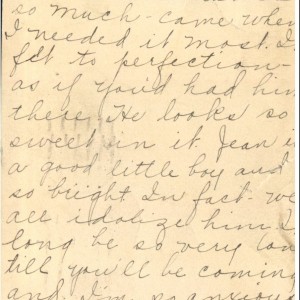 so much - came when
I needed it most. I
fit to perfection -
as if you'd had him
there. He looks so
sweet in it. Jean is
a good little boy and
so bright In fact - we
all idolize him. I
long be so very
till you'll be coming
and I'm so anxious